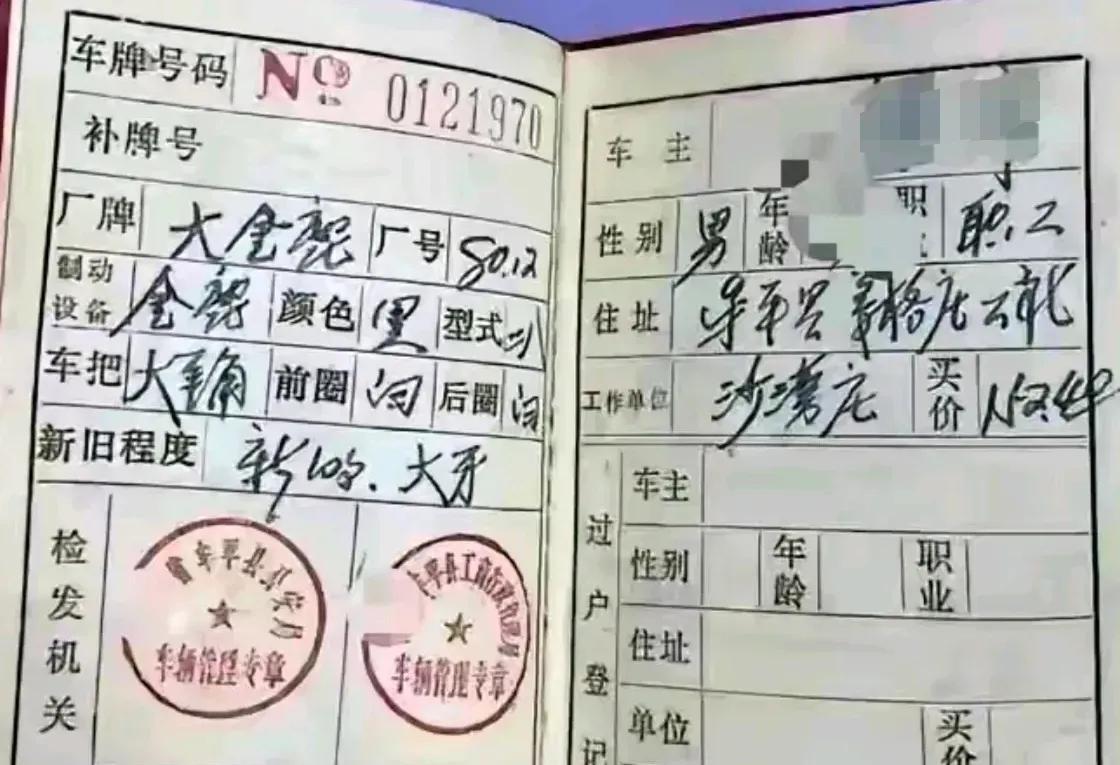 车牌号码 No 0121970
补牌号
厂牌 大金鹿 厂号 80.12
制动设备 金 颜色 黑 型式 二八
车把 大 前圈 白 后圈 白
新旧程度 新 大牙
检发机关
牟平县公安局
车辆管理专章
牟平县工商行政管理局
车辆管理专章
车主
性别 男 年龄 职 职工
住址 牟平县 格庄
工作单位 沙 庄 买价
过户登记
车主
性别 年龄 职业
住址
单位 买价